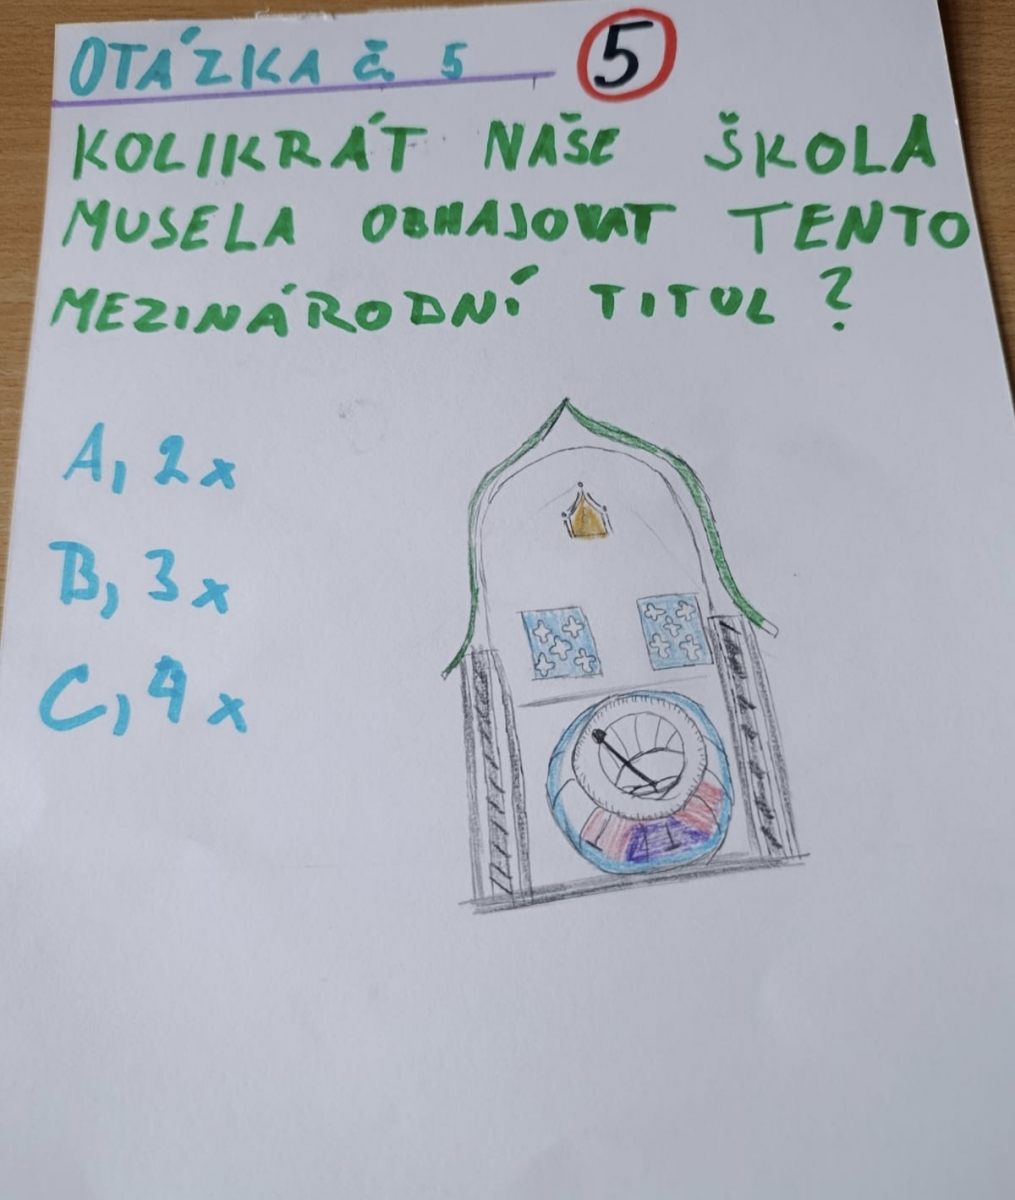 OTÁZKA č. 5 5
KOLIKRÁT NAŠE ŠKOLA
MUSELA OBHAJOVAT TENTO
MEZINÁRODNÍ TITUL ?
A, 2x
B, 3x
C, 4x